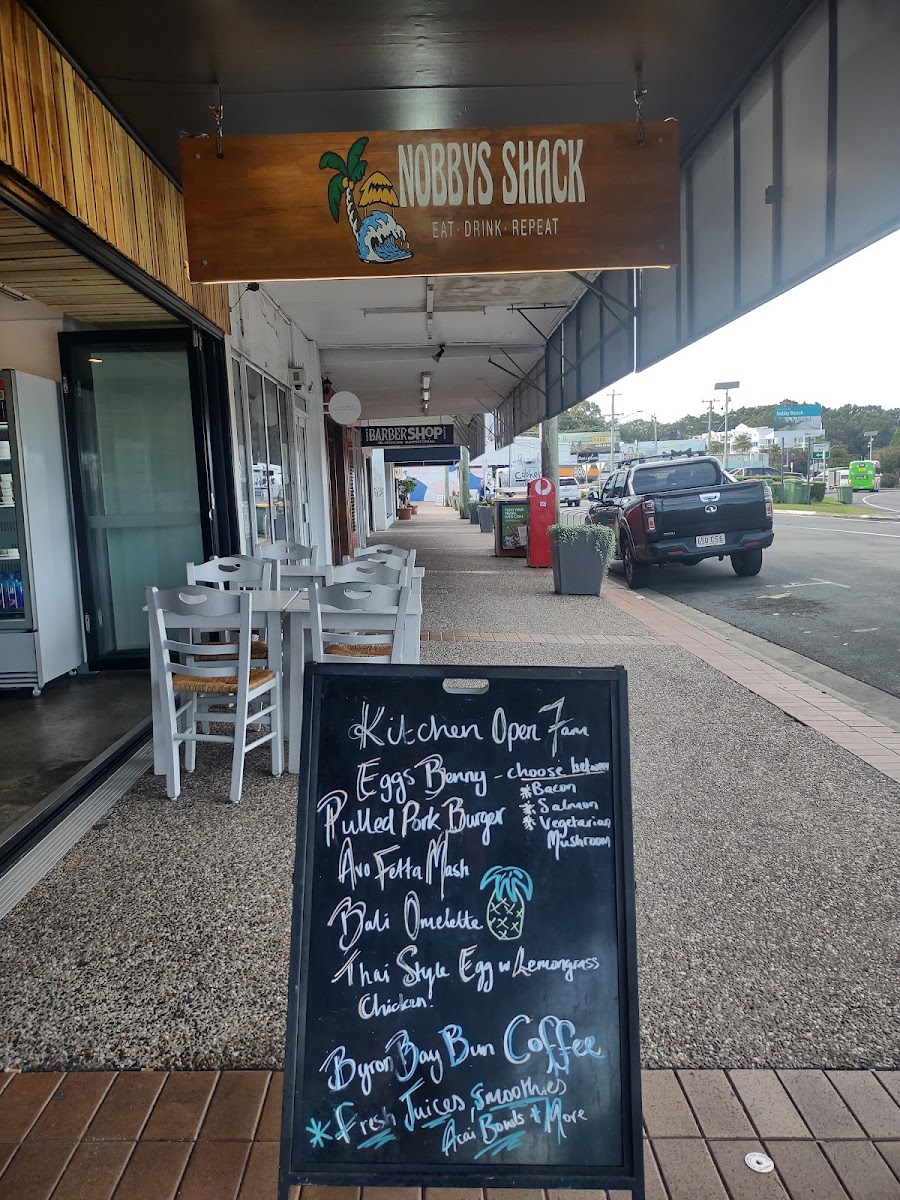 NOBBYS SHACK
EAT · DRINK · REPEAT
BARBER SHOP
Kitchen Open 7am
Eggs Benny - choose between
* Bacon
* Salmon
* Vegetarian
Mushroom
Pulled Pork Burger
Avo Fetta Mash
Bali Omelette
Thai Style Egg w Lemongrass
Chicken!
Byron Bay Bun Coffee
* Fresh Juices, Smoothies
Acai Bowls + More